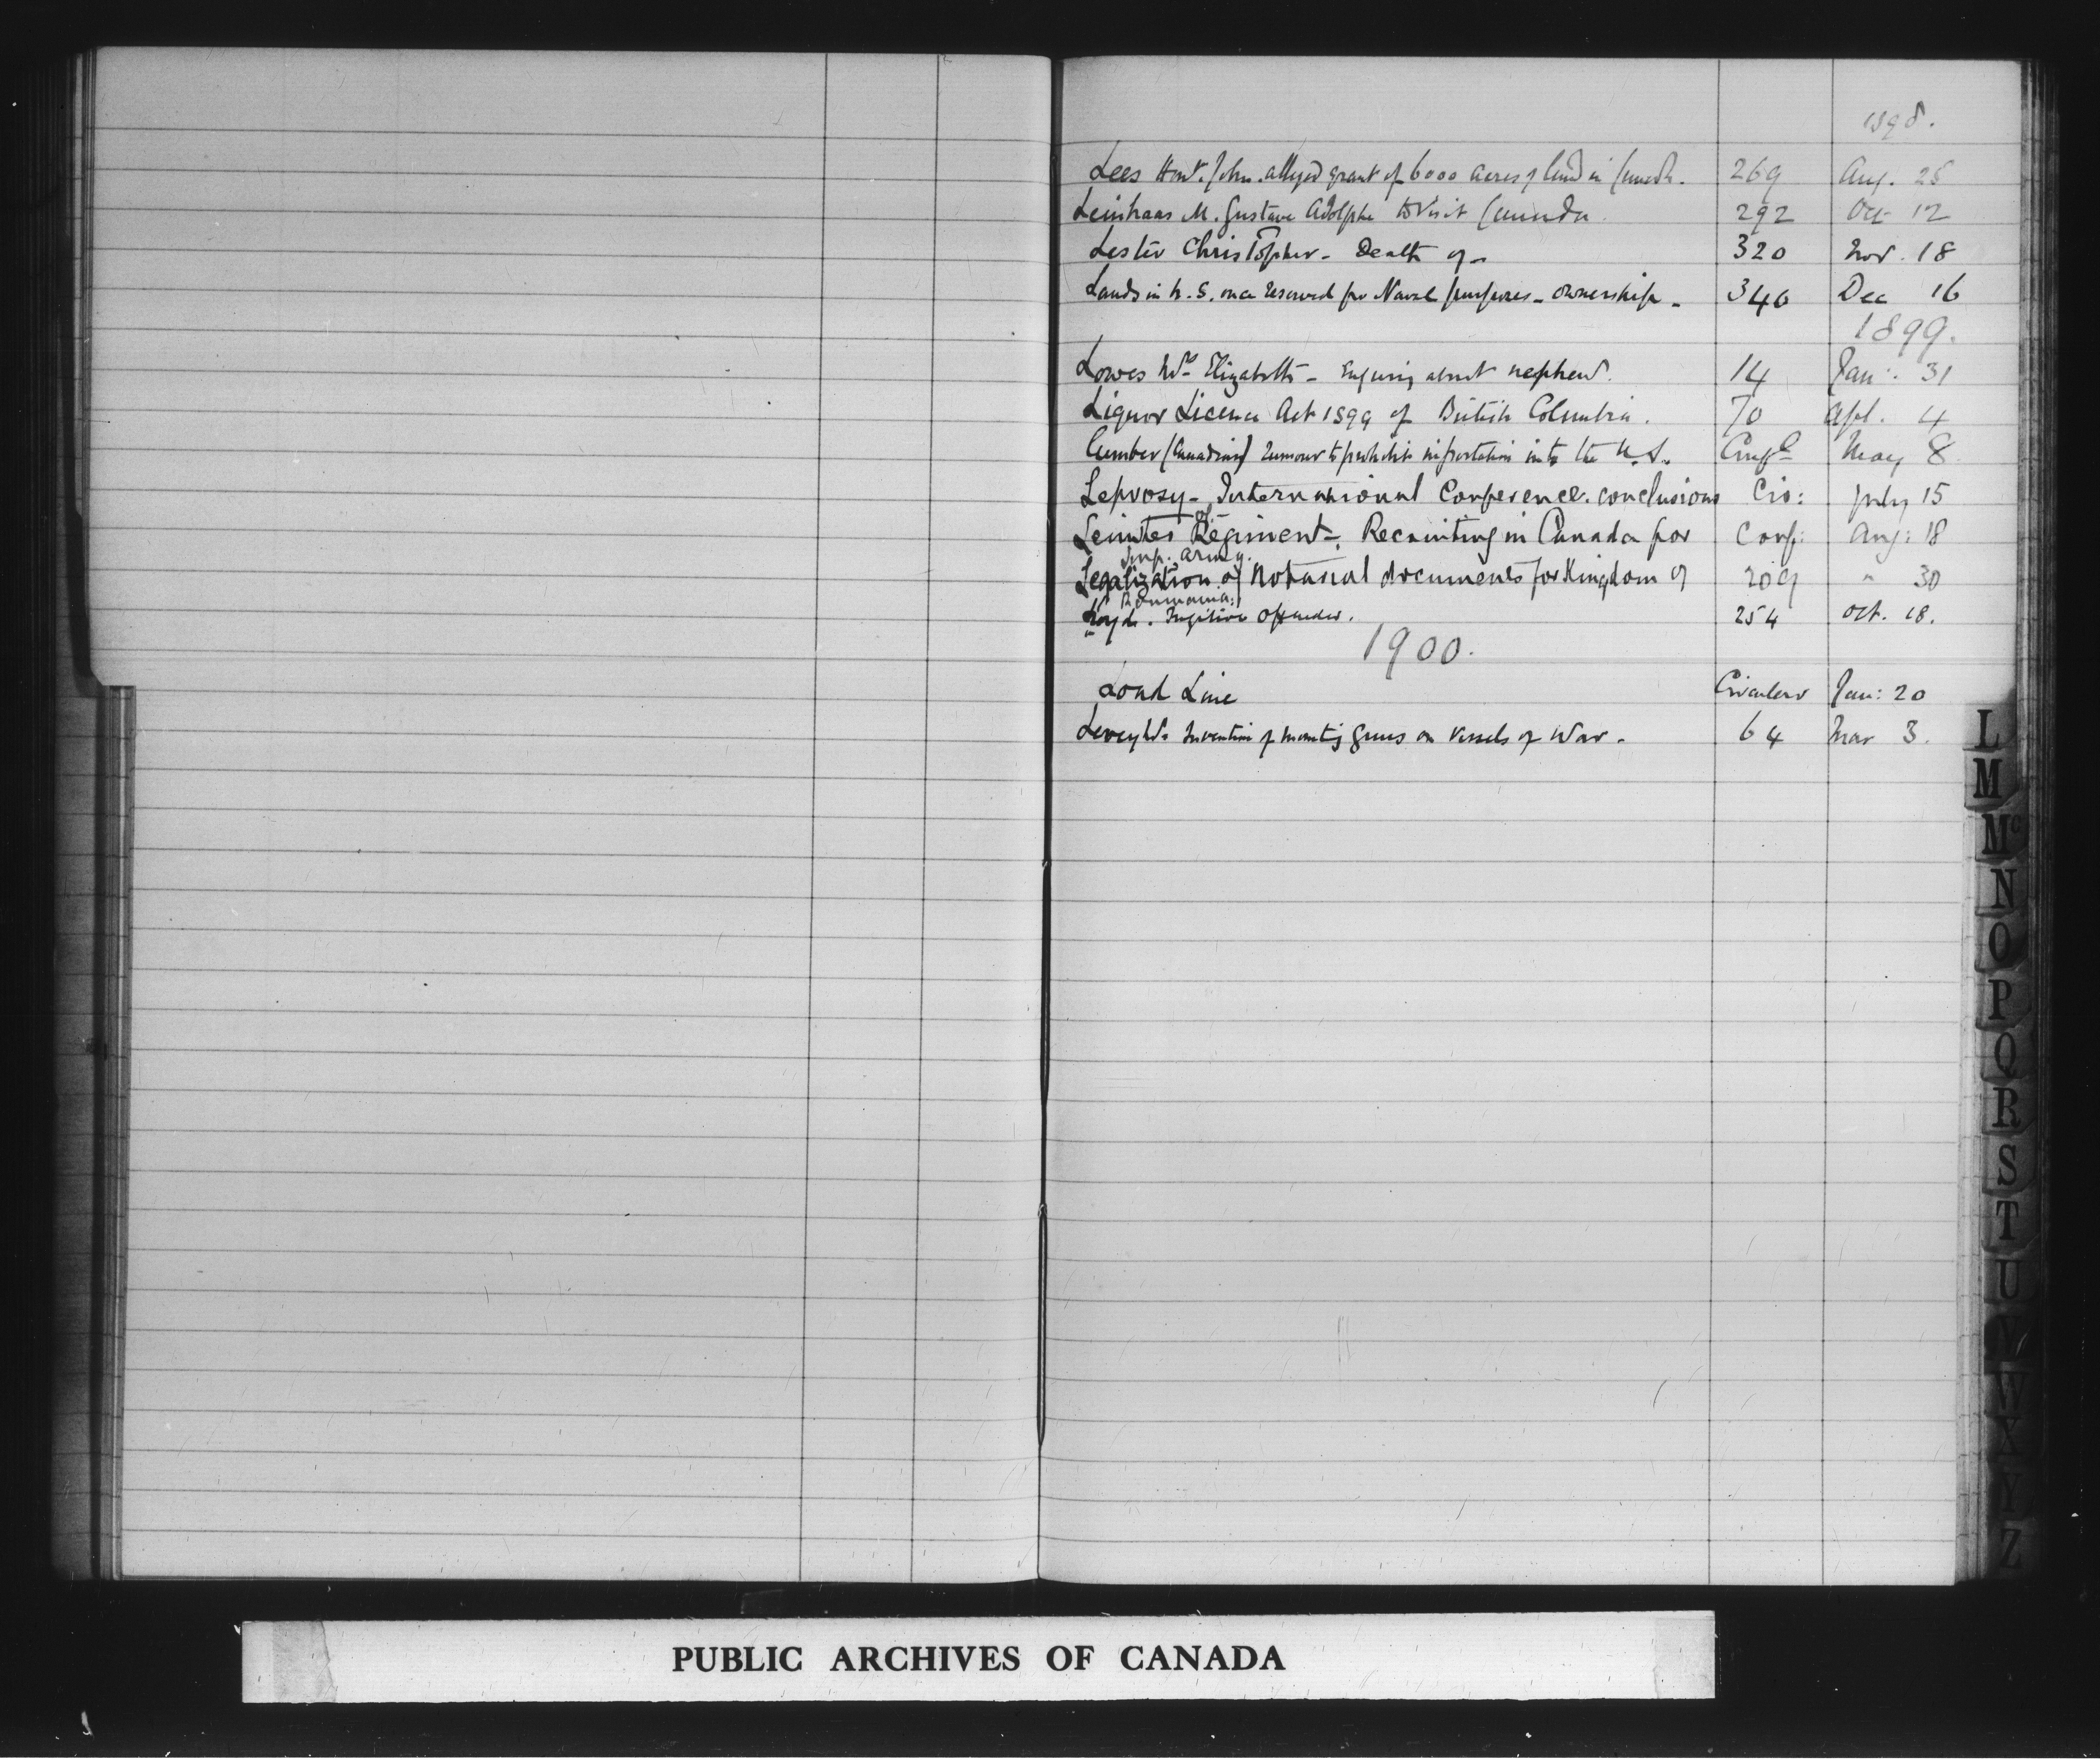 1898.
Lees Honr. John. alleged grant of 6000 acres of land in Canada. 269 Aug. 25
Leinhaas M. Gustave Adolphe to visit Canada. 292 Oct 12
Lester Christopher - Death of - 320 Nov. 18
Lands in N.S. once reserved for Naval purposes - ownership - 340 Dec 16
1899.
Lowes Mrs Elizabeth - Enquiring about nephew. 14 Jan: 31
Liquor Licence Act 1899 of British Columbia. 70 Apl. 4
Lumber (Canadian) rumour to prohibit importation into the U.S. May 8
Leprosy - International Conference. conclusions Cir: July 15
of
Leinster Regiment -. Recruiting in Canada for Conf: Aug: 18
Imp. Army.
Legalization of Notarial documents for Kingdom of 209 " 30
Roumania:
Lloyd. Fugitive Offender. 254 Oct. 18.
1900.
Load Line Circular Jan: 20
Invention of mounting Guns on Vessels of War. 64 Mar 3.
L
M
Mc
N
O
P
Q
R
S
T
U
V
W
X
Y
Z
PUBLIC ARCHIVES OF CANADA